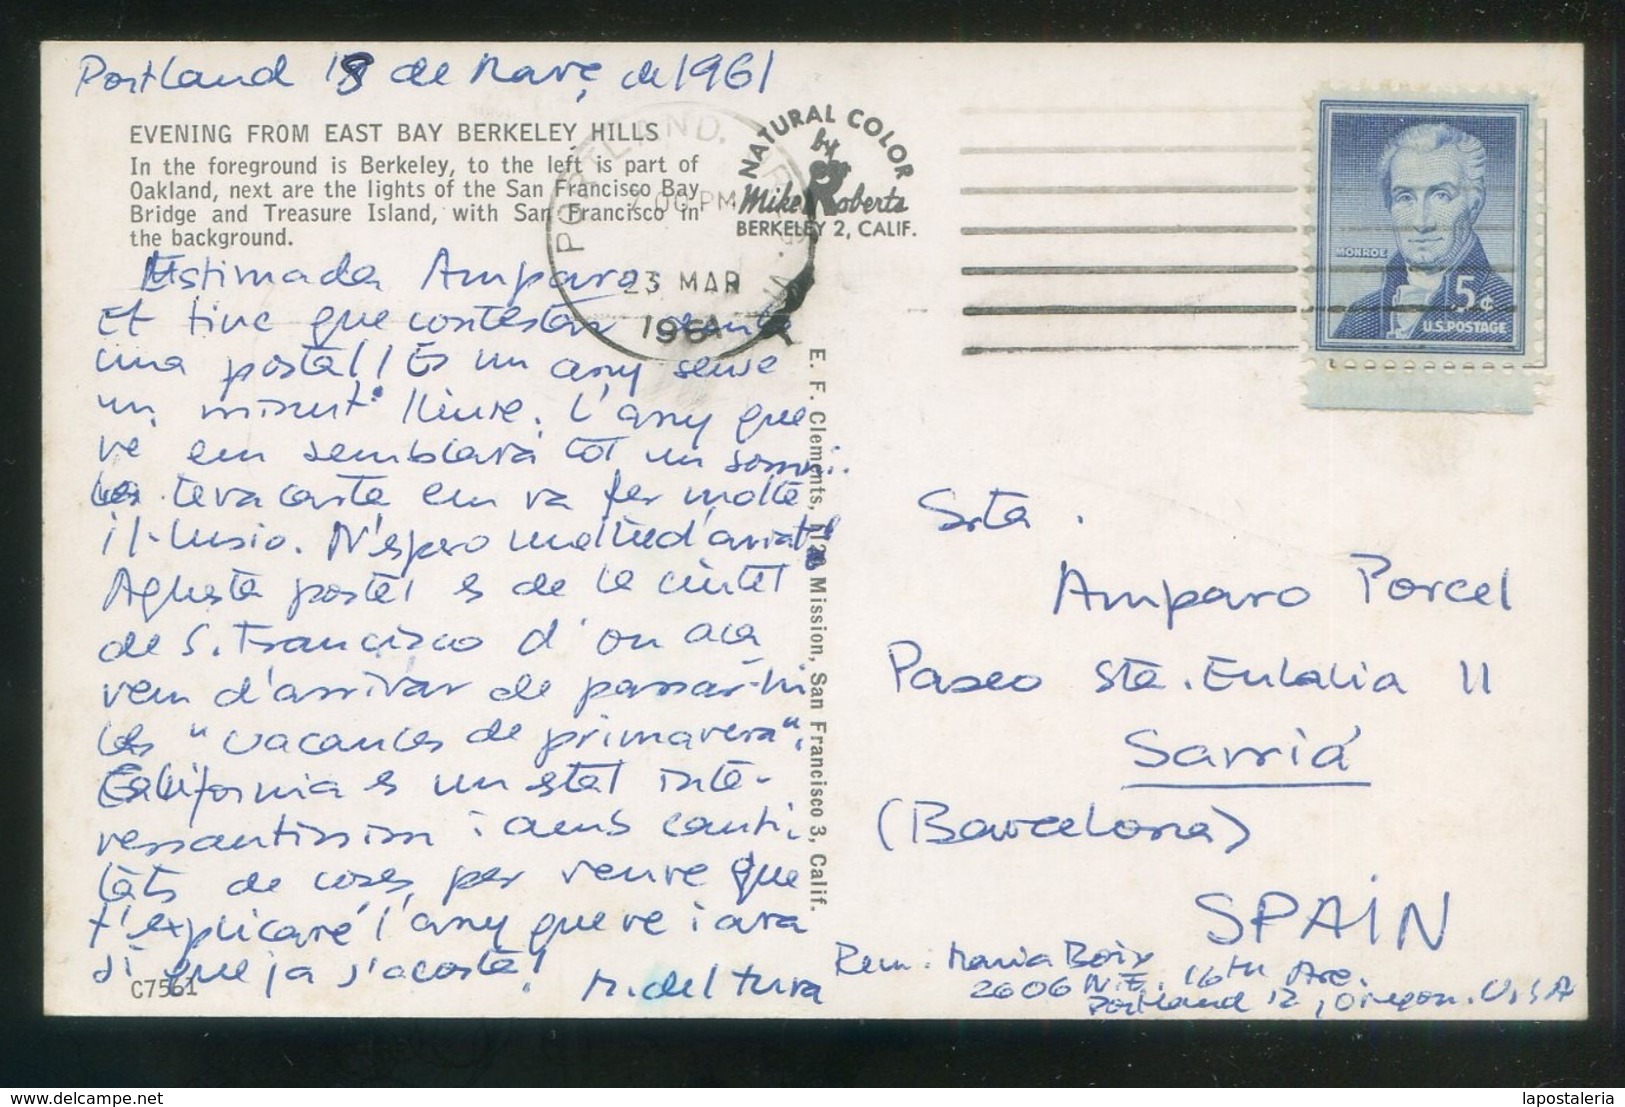 Portland 18 de Març de 1961
EVENING FROM EAST BAY BERKELEY HILLS
In the foreground is Berkeley, to the left is part of
Oakland, next are the lights of the San Francisco Bay
Bridge and Treasure Island, with San Francisco in
the background.
NATURAL COLOR
by
Mike Roberts
BERKELEY 2, CALIF.
PORTLAND,
7:00 PM
23 MAR
1961
MONROE
5¢
U.S. POSTAGE
Estimada Amparo
Et tinc que contestar
una postal! Es un any sense
un minut lliure. L'any que
ve em semblarà tot un somni.
teva carta em va fer molta
il·lusio. N'espero
Aquesta postal es de la ciutat
de S. Francisco d'on aca
vem d'arrivar de passar-hi
les "vacances de primavera".
California es un stat inte-
ressantissim i amb canti
tats de coses per veure que
t'explicaré l'any que ve i ara
si que ja s'acosta!
M. del Tura
C7561
E. F. Clements, Mission, San Francisco 3, Calif.
Srta.
Amparo Porcel
Paseo Sta. Eulalia 11
Sarriá
(Barcelona)
SPAIN
Rem: Maria Boix
2606 N.E. 16th Ave.
Portland 12, Oregon. U.S.A
delcampe.net
lapostaleria